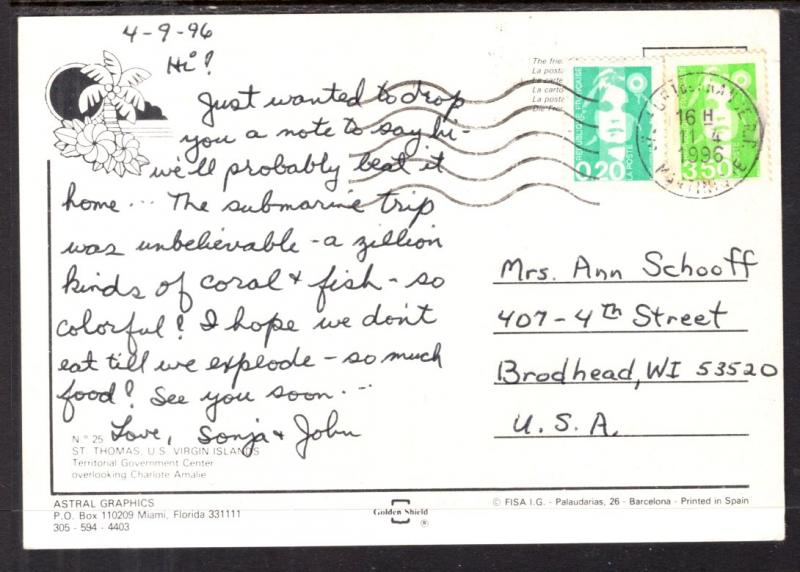 4-9-96
Hi!
Just wanted to drop
you a note to say hi-
we'll probably beat it
home... The submarine trip
was unbelievable - a zillion
kinds of coral & fish - so
colorful! I hope we don't
eat till we explode - so much
food! See you soon...
Love, Sonja & John
N.° 25
ST. THOMAS, U.S. VIRGIN ISLANDS
Territorial Government Center
overlooking Charlote Amalie
ASTRAL GRAPHICS
P.O. Box 110209 Miami, Florida 331111
305 - 594 - 4403
Golden Shield ®
© FISA I.G. - Palaudarias, 26 - Barcelona - Printed in Spain
The frie
La posta
La carte
La carto
La poste
Die Frei
REPUBLIQUE FRANÇAISE
0,20
LA POSTE
3,50
16 H
11 4
1996
MARTINIQUE
Mrs. Ann Schooff
407-4th Street
Brodhead, WI 53520
U.S.A.